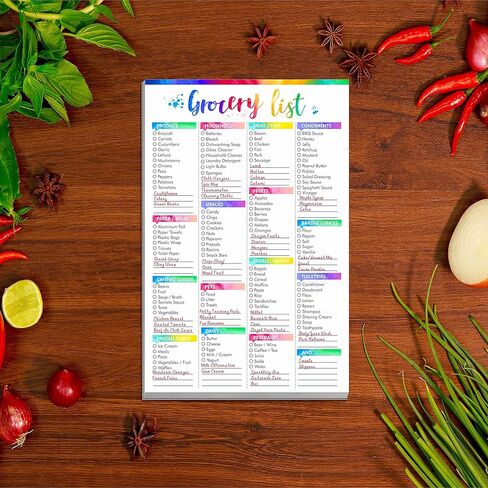 Grocery list
PRODUCE
Broccoli
Carrots
Cucumbers
Garlic
Lettuce
Mushrooms
Onions
Peas
Peppers
Potatoes
Tomatoes
Celery
Green Beans
PAPER / WRAP
Aluminum Foil
Paper Towels
Plastic Bags
Plastic Wrap
Tissues
Toilet Paper
Cling Wrap
CANNED GOODS
Beans
Fruit
Soup / Broth
Tomato Sauce
Tuna
Vegetables
Chicken Breast
FROZEN FOODS
Ice Cream
Meals
Pizza
Vegetables
Waffles
Mandarin Oranges
French Fries
HOUSEHOLD
Batteries
Bleach
Dishwashing Soap
Glass Cleaner
Household Cleaner
Laundry Detergent
Light Bulbs
Sponges
Cloth Hangers
Thermometer
Cleaning Cloths
SNACKS
Candy
Chips
Cookies
Crackers
Nuts
Popcorn
Pretzels
Raisins
Snack Bars
Mixed Fruit
PETS
Food
Litter
Treats
Potty Training Pads
Blanket
DAIRY
Butter
Cheese
Eggs
Milk / Cream
Yogurt
Milk Alternative
Sour Cream
MEAT / FISH
Bacon
Beef
Chicken
Fish
Pork
Sausage
Lamb
Mutton
Salmon
Salami
FRUITS
Apples
Avocados
Bananas
Berries
Grapes
Melons
Oranges
Dragon Fruits
Durian
Mangoes
Peaches
BREAD / GRAINS
Bagels
Bread
Cereal
Muffins
Pasta
Rice
Sandwiches
Tortillas
Millet
Buns
Angel Hair Pasta
BEVERAGES
Beer / Wine
Coffee / Tea
Juice
Soda
Water
Sparkling Ice
Gatorade Zero
CONDIMENTS
BBQ Sauce
Honey
Jelly
Ketchup
Mustard
Oil
Peanut Butter
Pickles
Salad Dressing
Soy Sauce
Spaghetti Sauce
Vinegar
Maple Syrup
Mayonnaise
BAKING / SPICES
Flour
Pepper
Salt
Sugar
Vanilla
Yeast
TOILETRIES
Conditioner
Deodorant
Floss
Lotion
Razors
Shampoo
Shaving Cream
Soap
Toothpaste
Body/Face Wash
Pain Reliever
AND
Towels
Slippers